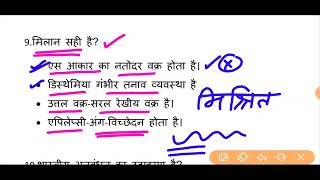 9.मिलान सही है?
एस आकार का नतोदर वक्र होता है।
डिस्थेमिया गंभीर तनाव व्यवस्था है
• उत्तल वक्र-सरल रेखीय वक्र है।
• एपिलेप्सी-अंग-विच्छेदन होता है।
मिश्रित